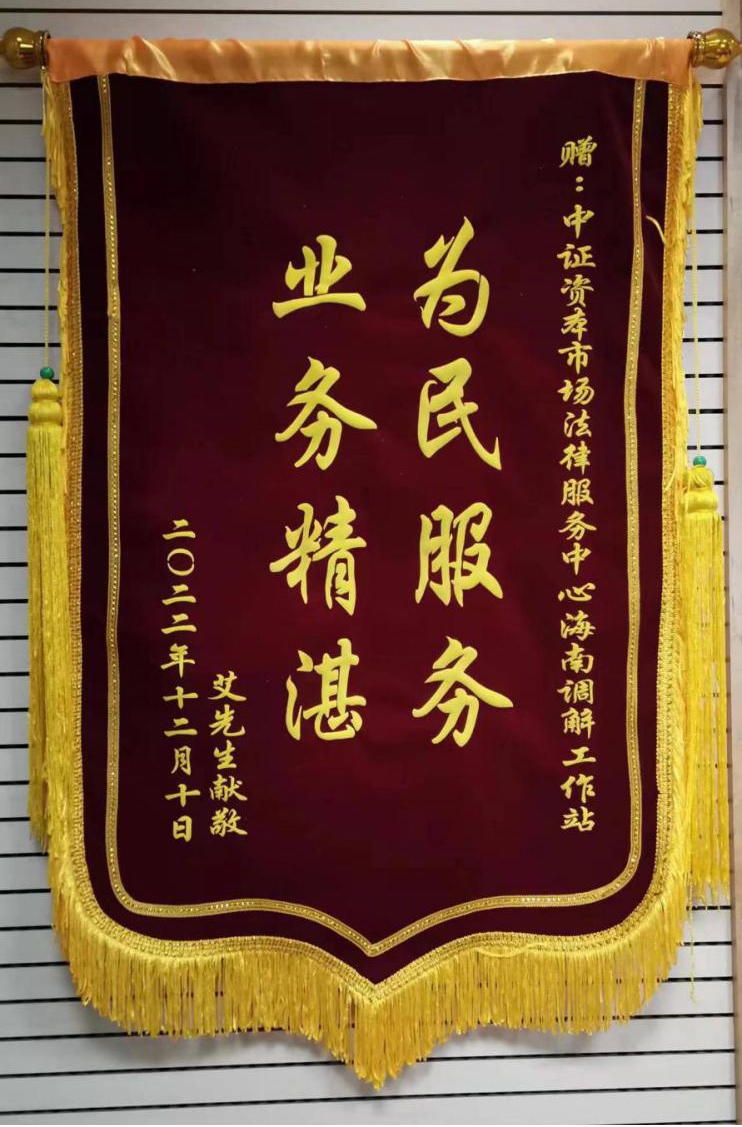 赠：中证资本市场法律服务中心海南调解工作站
为民服务
业务精湛
艾先生献敬
二〇二二年十二月十日